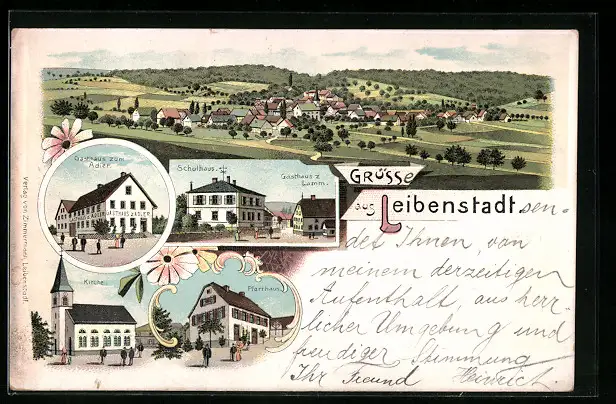 Gasthaus zum
Adler.
GASTHAUS z. ADLER
Schulhaus.
Gasthaus z.
Lamm.
GRÜSSE
aus Leibenstadt sen-
det Ihnen, von
meinem derzeitigen
Aufenthalt, aus herr-
licher Umgebung und
freudiger Stimmung
Ihr Freund Heinrich.
Kirche
Pfarrhaus.
Verlag von Zimmermann, Leibenstadt.